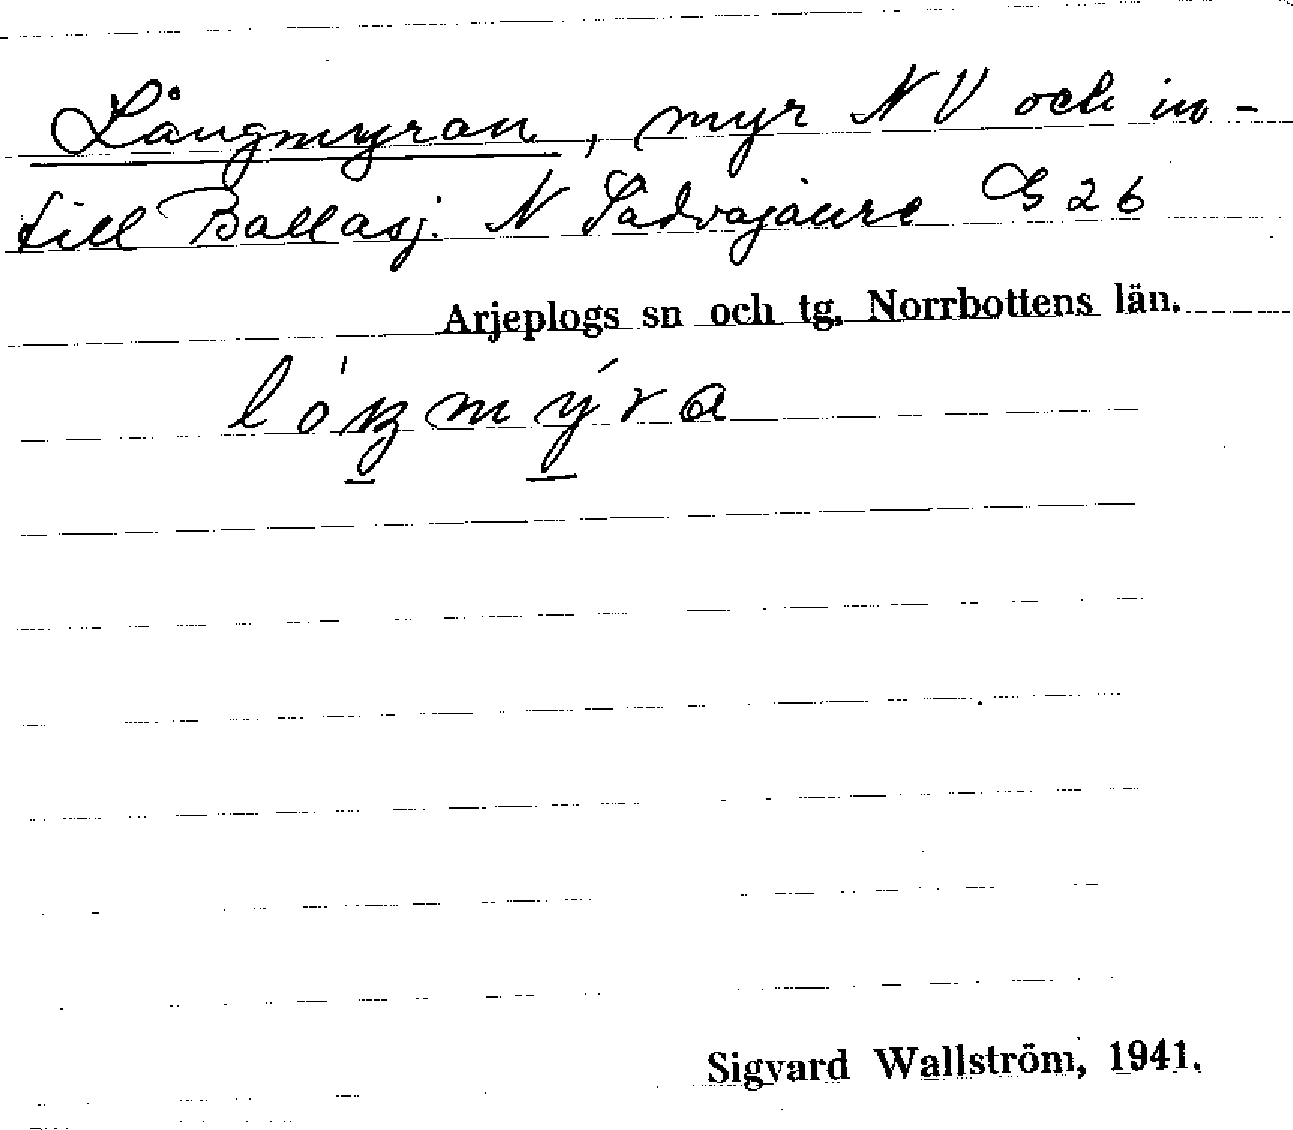 Långmyran, myr NV och in-
till Ballasj. N Sädvajaure G 26
Arjeplogs sn och tg. Norrbottens län.
Sigvard Wallström, 1941.